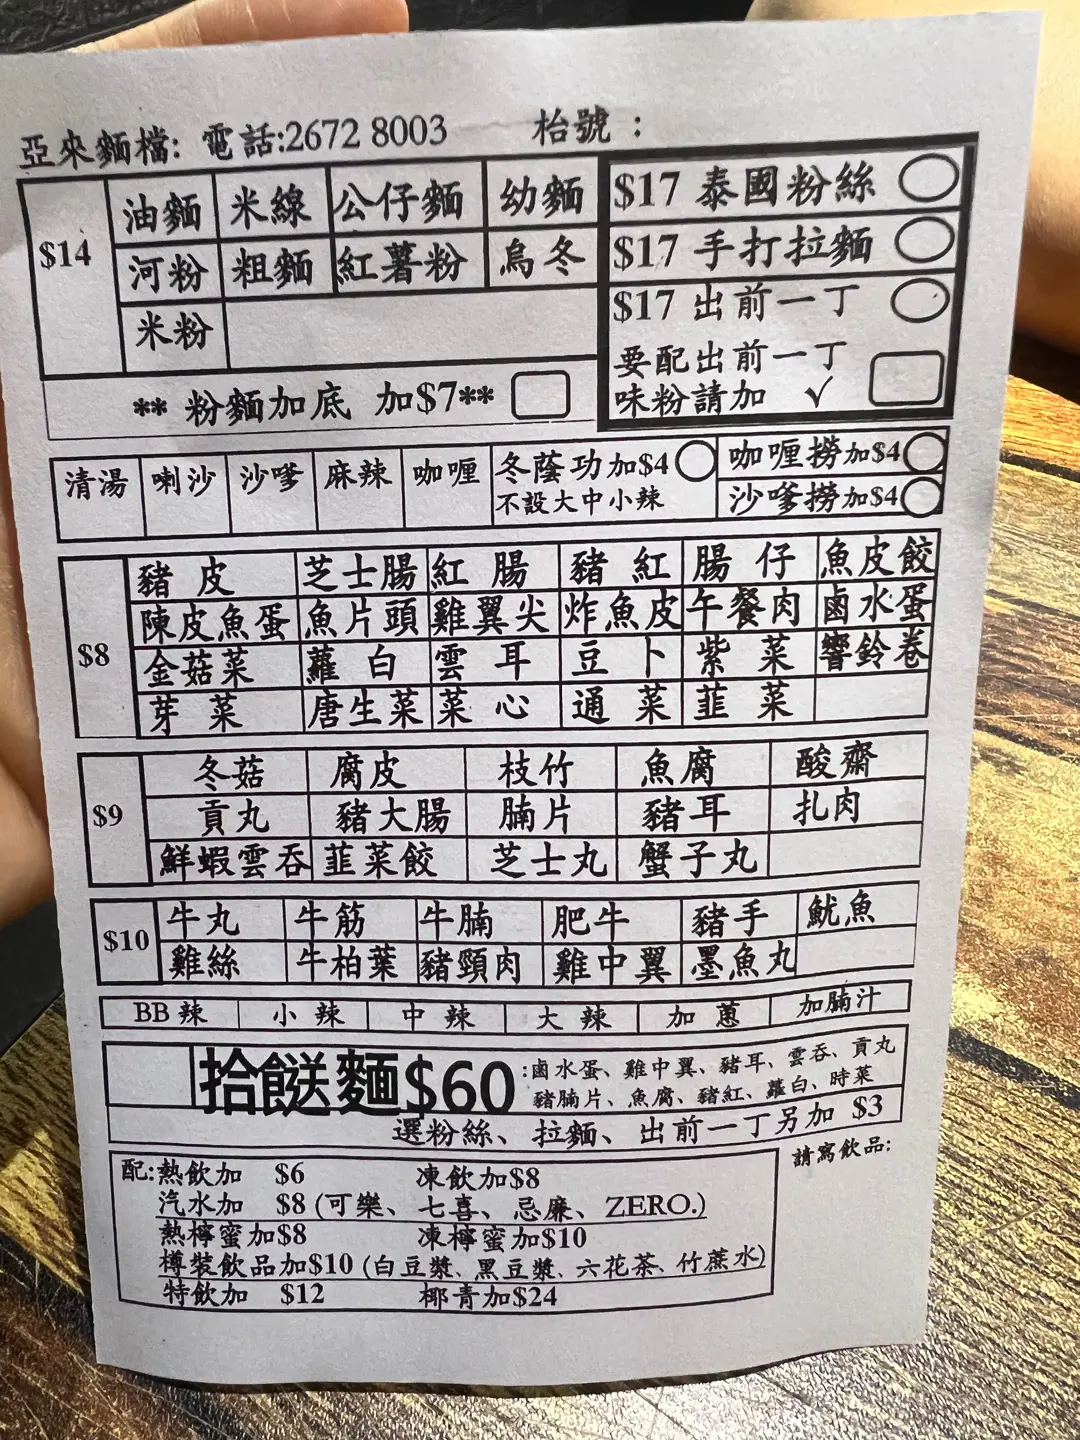 亞來麵檔: 電話:2672 8003 枱號 :
$14
油麵 米線 公仔麵 幼麵
河粉 粗麵 紅薯粉 烏冬
米粉
** 粉麵加底 加$7**
$17 泰國粉絲
$17 手打拉麵
$17 出前一丁
要配出前一丁
味粉請加 √
清湯 喇沙 沙嗲 麻辣 咖喱
冬蔭功加$4
不設大中小辣
咖喱撈加$4
沙嗲撈加$4
$8
豬皮 芝士腸 紅腸 豬紅 腸仔 魚皮餃
陳皮魚蛋 魚片頭 雞翼尖 炸魚皮 午餐肉 鹵水蛋
金菇菜 蘿白 雲耳 豆卜 紫菜 響鈴卷
芽菜 唐生菜 菜心 通菜 韮菜
$9
冬菇 腐皮 枝竹 魚腐 酸齋
貢丸 豬大腸 腩片 豬耳 扎肉
鮮蝦雲吞 韮菜餃 芝士丸 蟹子丸
$10
牛丸 牛筋 牛腩 肥牛 豬手 魷魚
雞絲 牛柏葉 豬頸肉 雞中翼 墨魚丸
BB辣 小辣 中辣 大辣 加蔥 加腩汁
拾餸麵$60 :鹵水蛋、雞中翼、豬耳、雲吞、貢丸
豬腩片、魚腐、豬紅、蘿白、時菜
選粉絲、拉麵、出前一丁另加 $3
請寫飲品:
配:熱飲加 $6 凍飲加$8
汽水加 $8 (可樂、七喜、忌廉、ZERO.)
熱檸蜜加$8 凍檸蜜加$10
樽裝飲品加$10 (白豆漿、黑豆漿、六花茶、竹蔗水)
特飲加 $12 椰青加$24